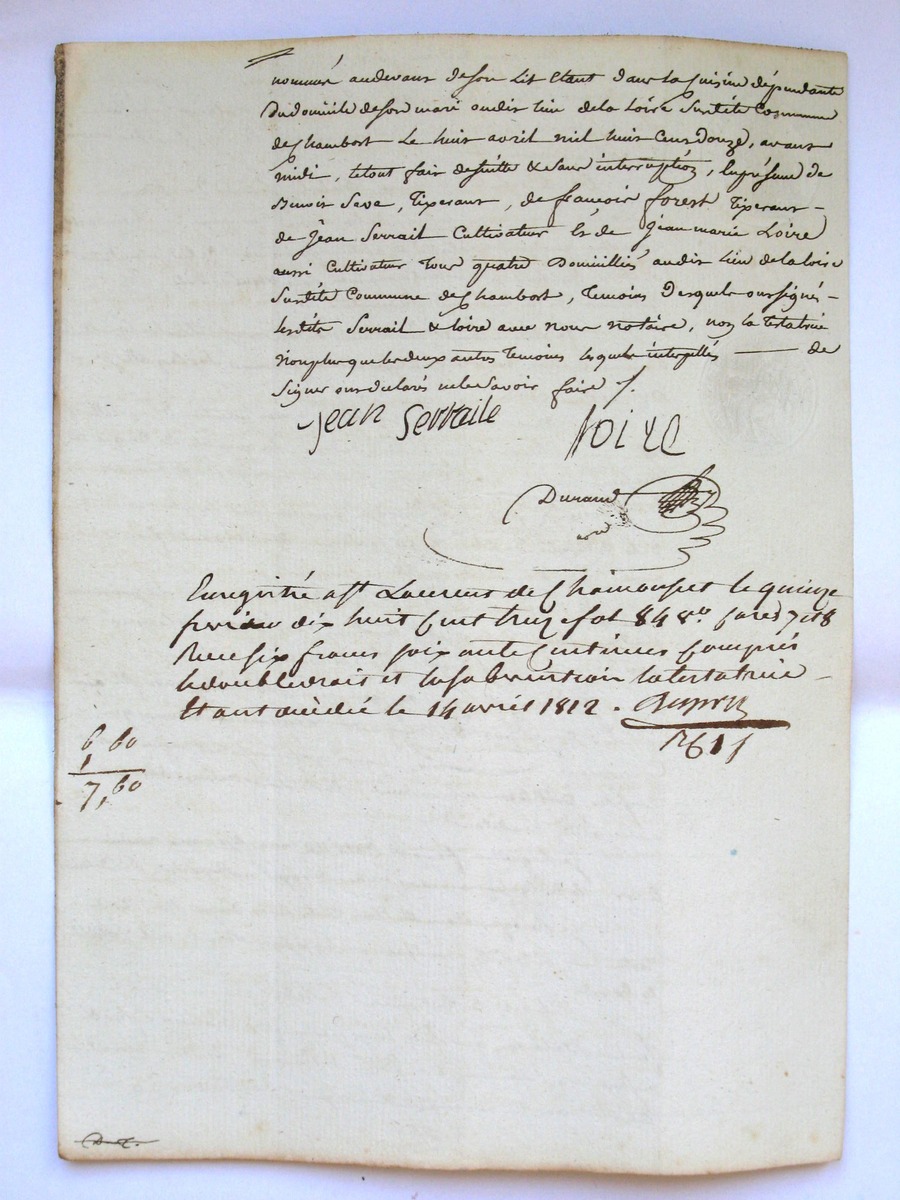 nommé au devant de son lit Etant dans la Cuisine dépendante
Du domicile de son mari au dit lieu de la Loire Susdite Commune
de Chambost Le huit avril mil huit Cent Douze, avant
midi, le tout fait de suitte & sans interruption, En présence de
Benoit Seve, Tixerant, de françois forest Tixerant -
de Jean Serrail Cultivateur Et de Jean marie Loire
aussi Cultivateur Tous quatre Domiciliés au dit Lieu de la loire
Susdite Commune de Chambost, Temoins Desquels ont signés -
Lesdits Serrail & loire avec nous notaire, non la Testatrice
Non plus que les deux autres Temoins lesquels interpellés — de
Signer ont déclarés ne le Savoir faire /.
Jean Serraile
Loire
Durand
Enregistré a St Laurent de Chamousset le quinze
dix huit Cent treize fol 84 vo. cases 7 et 8
Recu six francs soixante Centimes Compris
le double droit et la subvention la testatrice -
Etant décédée le 14 avril 1812.
6,60
1
7,60